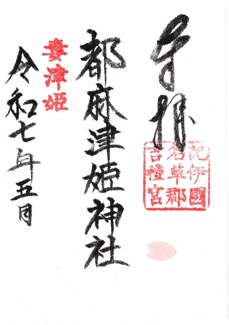 奉拝
紀伊國
名草郡
吉禮宮
都麻津姫神社
妻津姫
令和七年五月